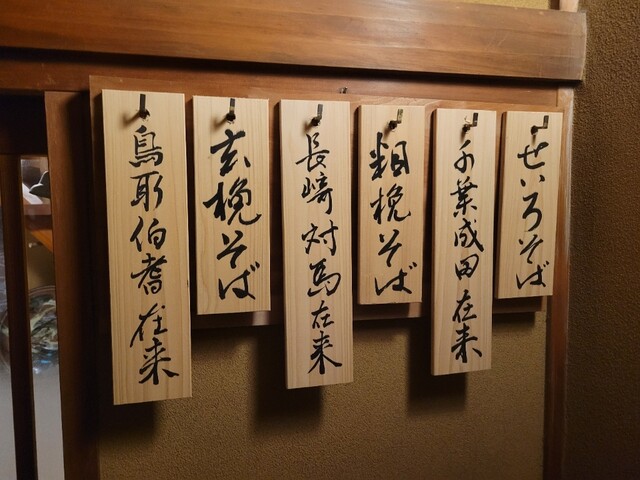 せいろそば
千葉成田在来
粗挽そば
長崎対馬在来
玄挽そば
鳥取伯耆在来